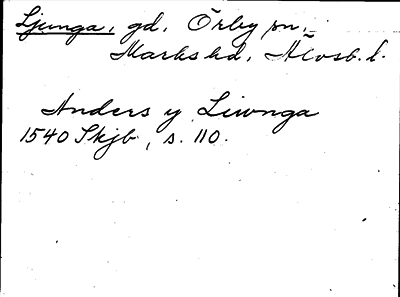 Ljunga, gd, Örby sn,
Marks hd, Älvsb. l.
Anders y Liwnga
1540 Skjb, s. 110.